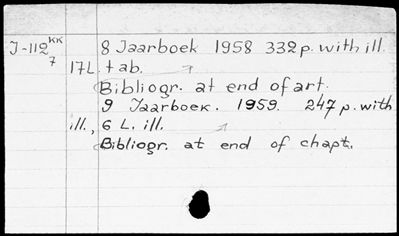 J-112 KK 8 Jaarboek 1958 332 p. with ill.
7
17 L. tab.
Bibliogr. at end of art.
9 Jaarboek. 1959. 247 p. with
ill., 6 L. ill.
Bibliogr. at end of chapt.